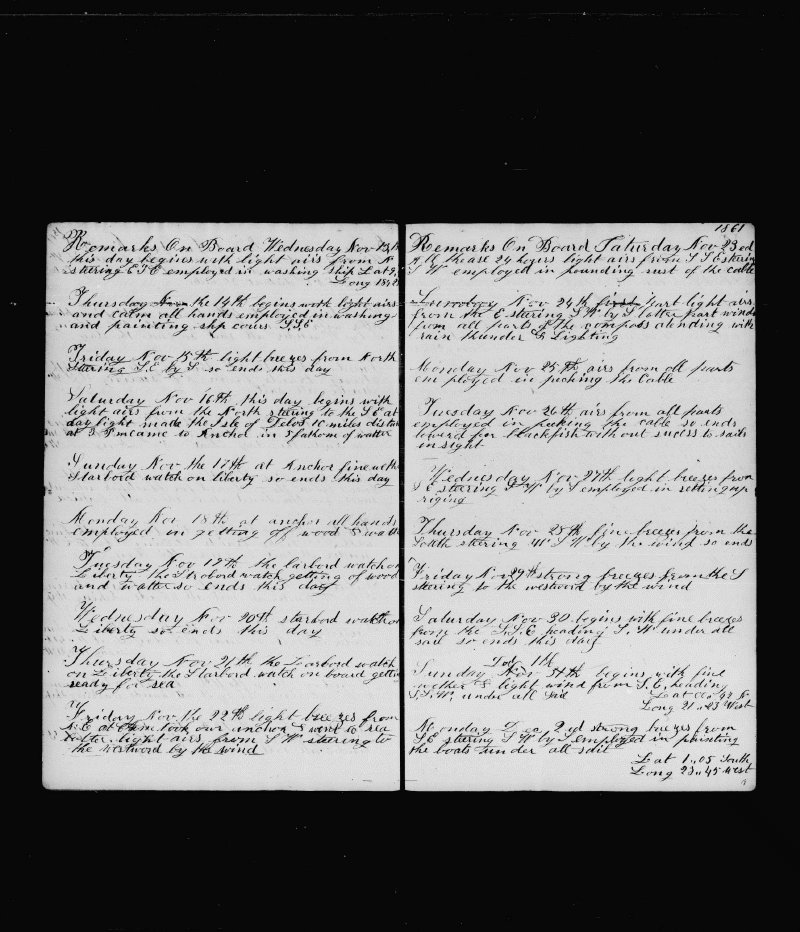 Remarks On Board Wednesday Nov 13th
this day begins with light airs from N
stering E S E employed in washing ship Lat 9,
Long 18,,2
Thursday the 14th begins with light airs
and calm all hands employed in washing
and painting ship cours S S E
Friday Nov 15th light breezes from North
stering S.E by S so ends this day
Saturday Nov 16th this day begins with
light airs from the North stering to the S E at
day light made the Isle of Delos 10 miles distan
at 3 P m came to Anchor in 5 fathom of watter
Sunday Nov the 17th at Anchor fine weth
Starbord watch on liberty so ends this day
Monday Nov 18th at anchor all hands
employed in getting off wood & watt
Tuesday Nov 19th the larbord watch on
Liberty the Strobord watch getting of wood
and watter so ends this day
Wednesday Nov 20th starbord watch on
Liberty so ends this day
Thursday Nov 21th the Larbord watch
on Liberty the Starbord watch on board gettin
ready for sea
Friday Nov the 22th light breezes from
N.E at took our anchor & went to sea
latter light airs from S W stering to
the westword by the wind
1861
Remarks On Board Saturday Nov 23ed
these 24 hours light airs from S S E sterin
S W employed in pounding rust of the cable
Nov 24th first part light airs
from the E stering S W by S latter part winds
from all parts of the compass atending with
rain thunder & Lighting
Monday Nov 25th airs from all parts
employed in pecking the Cable
Tuesday Nov 26th airs from all parts
employed in pecking the cable so ends
lowerd for blackfish without sucess to sails
in sight
Wednesday Nov 27th light breezes from
S E stering S W by S employed in setting up
riging
Thursday Nov 28th fine breezes from the
South stering W S W by the wind so ends
Friday Nov 29th strong breezes from the S
stering to the westword by the wind
Saturday Nov 30 begins with fine breezes
from the S.S.E heading S. W under all
sail so ends this day
Dec 1th
Sunday Nov 31th begins with fine
wether & light wind from S.E. heading
S.S.W. under all sid
Long 21,,45 West
Monday Dec 2ed strong breezes from
S E stering S W by S employed in painting
the boats under all sail
Lat 1,,05 South
Long 23,,45 West